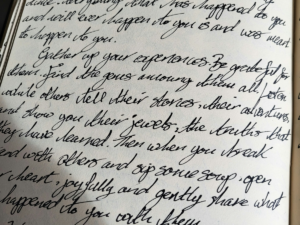 everything that has happened to you
and will ever happen to you is and was meant
to happen to you.
Gather up your experiences. Be grateful for
them. Find the ones among them all. Listen
while others tell their stories, their adventures,
and show you their jewels, the truths that
they have learned. Then when you break
and with others and sip some soup, open
r heart, joyfully and gently share what
happened to you with them.